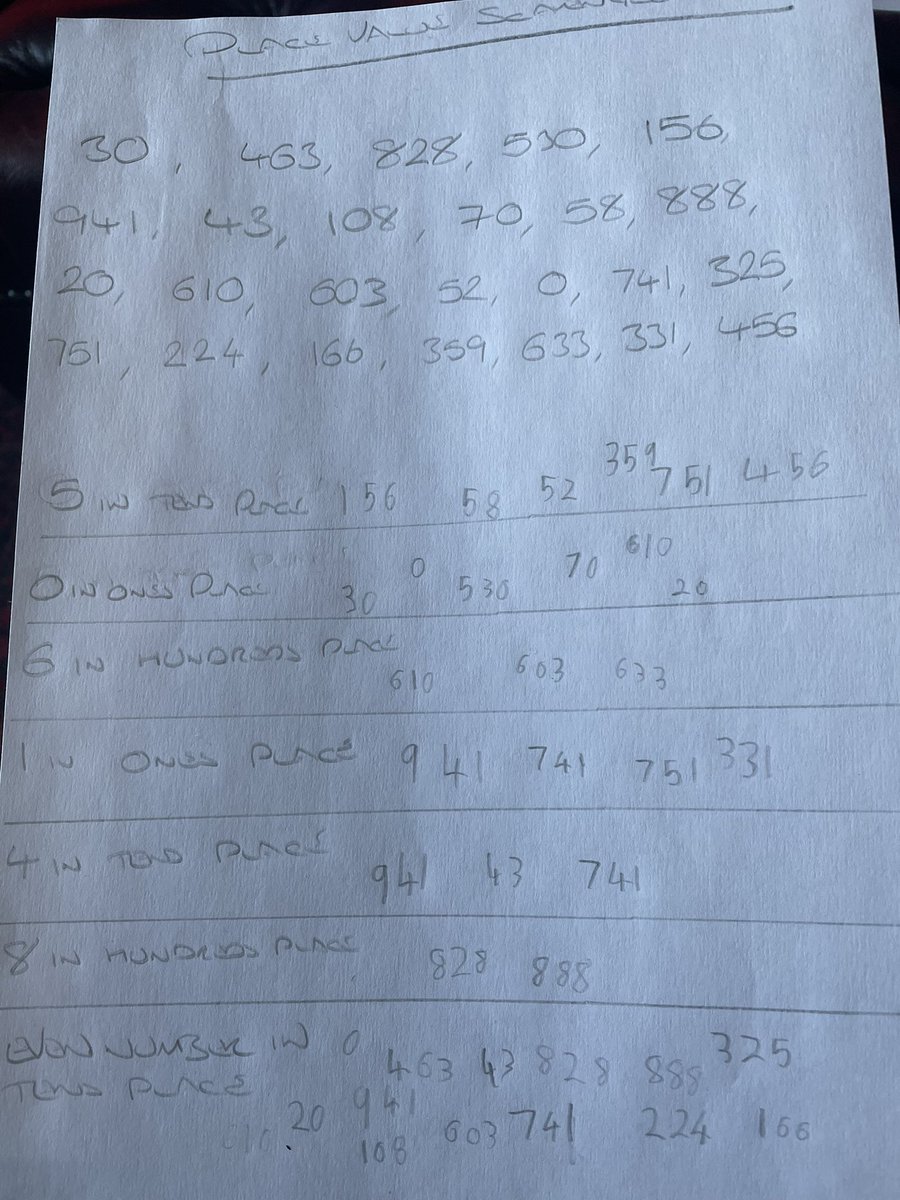 PLACE VALUE
30, 463, 828, 530, 156,
941, 43, 108, 70, 58, 888,
20, 610, 603, 52, 0, 741, 325,
751, 224, 166, 359, 633, 331, 456
5 IN TENS PLACE 156 58 52 359 751 456
0 IN ONES PLACE 30 0 530 70 610 20
6 IN HUNDREDS PLACE 610 603 633
1 IN ONES PLACE 941 741 751 331
4 IN TENS PLACE 941 43 741
8 IN HUNDREDS PLACE 828 888
EVEN NUMBER IN 0 463 43 828 888 325
TENS PLACE 20 941 108 603 741 224 166